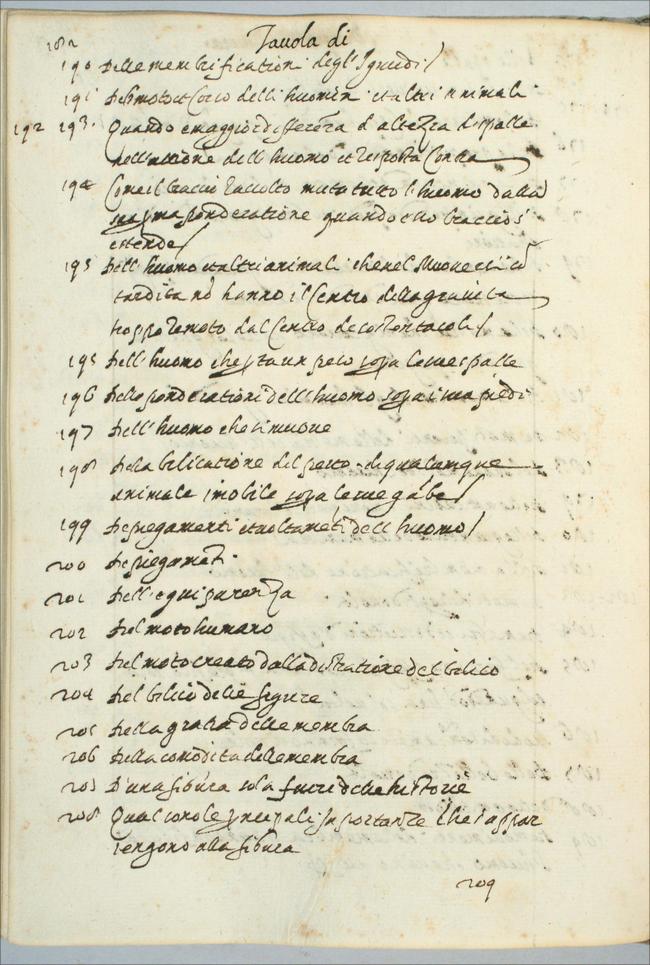 182
Tavola di
190 Delle membrificationi degl'Ignudi/
191 Del moto et Corso delli huomini et altri animali
192 193. Quando e maggior differenza d'altezza di spalle
nell'attione dell'huomo et risposta Contra
194 Come il braccio raccolto muta tutto l'huomo dalla
sua prima ponderatione quando esso braccio s'
estende/
195 Dell'huomo et altri animali che nel Muoversi co
tardita no hanno il Centro della gravita
troppo remoto dal Centro de sostentacoli/
195 Dell'huomo che porta un peso sopra le sue spalle
196 Della ponderatione dell'huomo sopra i sua piedi
197 Dell'huomo che si muove
198 Della bilicatione del peso di qualunque
animale imobile sopra le sue gābe/
199 De piegamenti et voltamēti dell huomo/
200 De piegameti.
201 Dell'equiparenza
202 Del moto humano
203 Del moto creato dalla distratione del bilico
204 Del bilico delle figure
205 Della gratia delle membra
206 Della comodita delle membra
207 D'una figura sola fuori delle historie
208 Quai sono le principali Importantie che s'appar
tengono alla figura
209